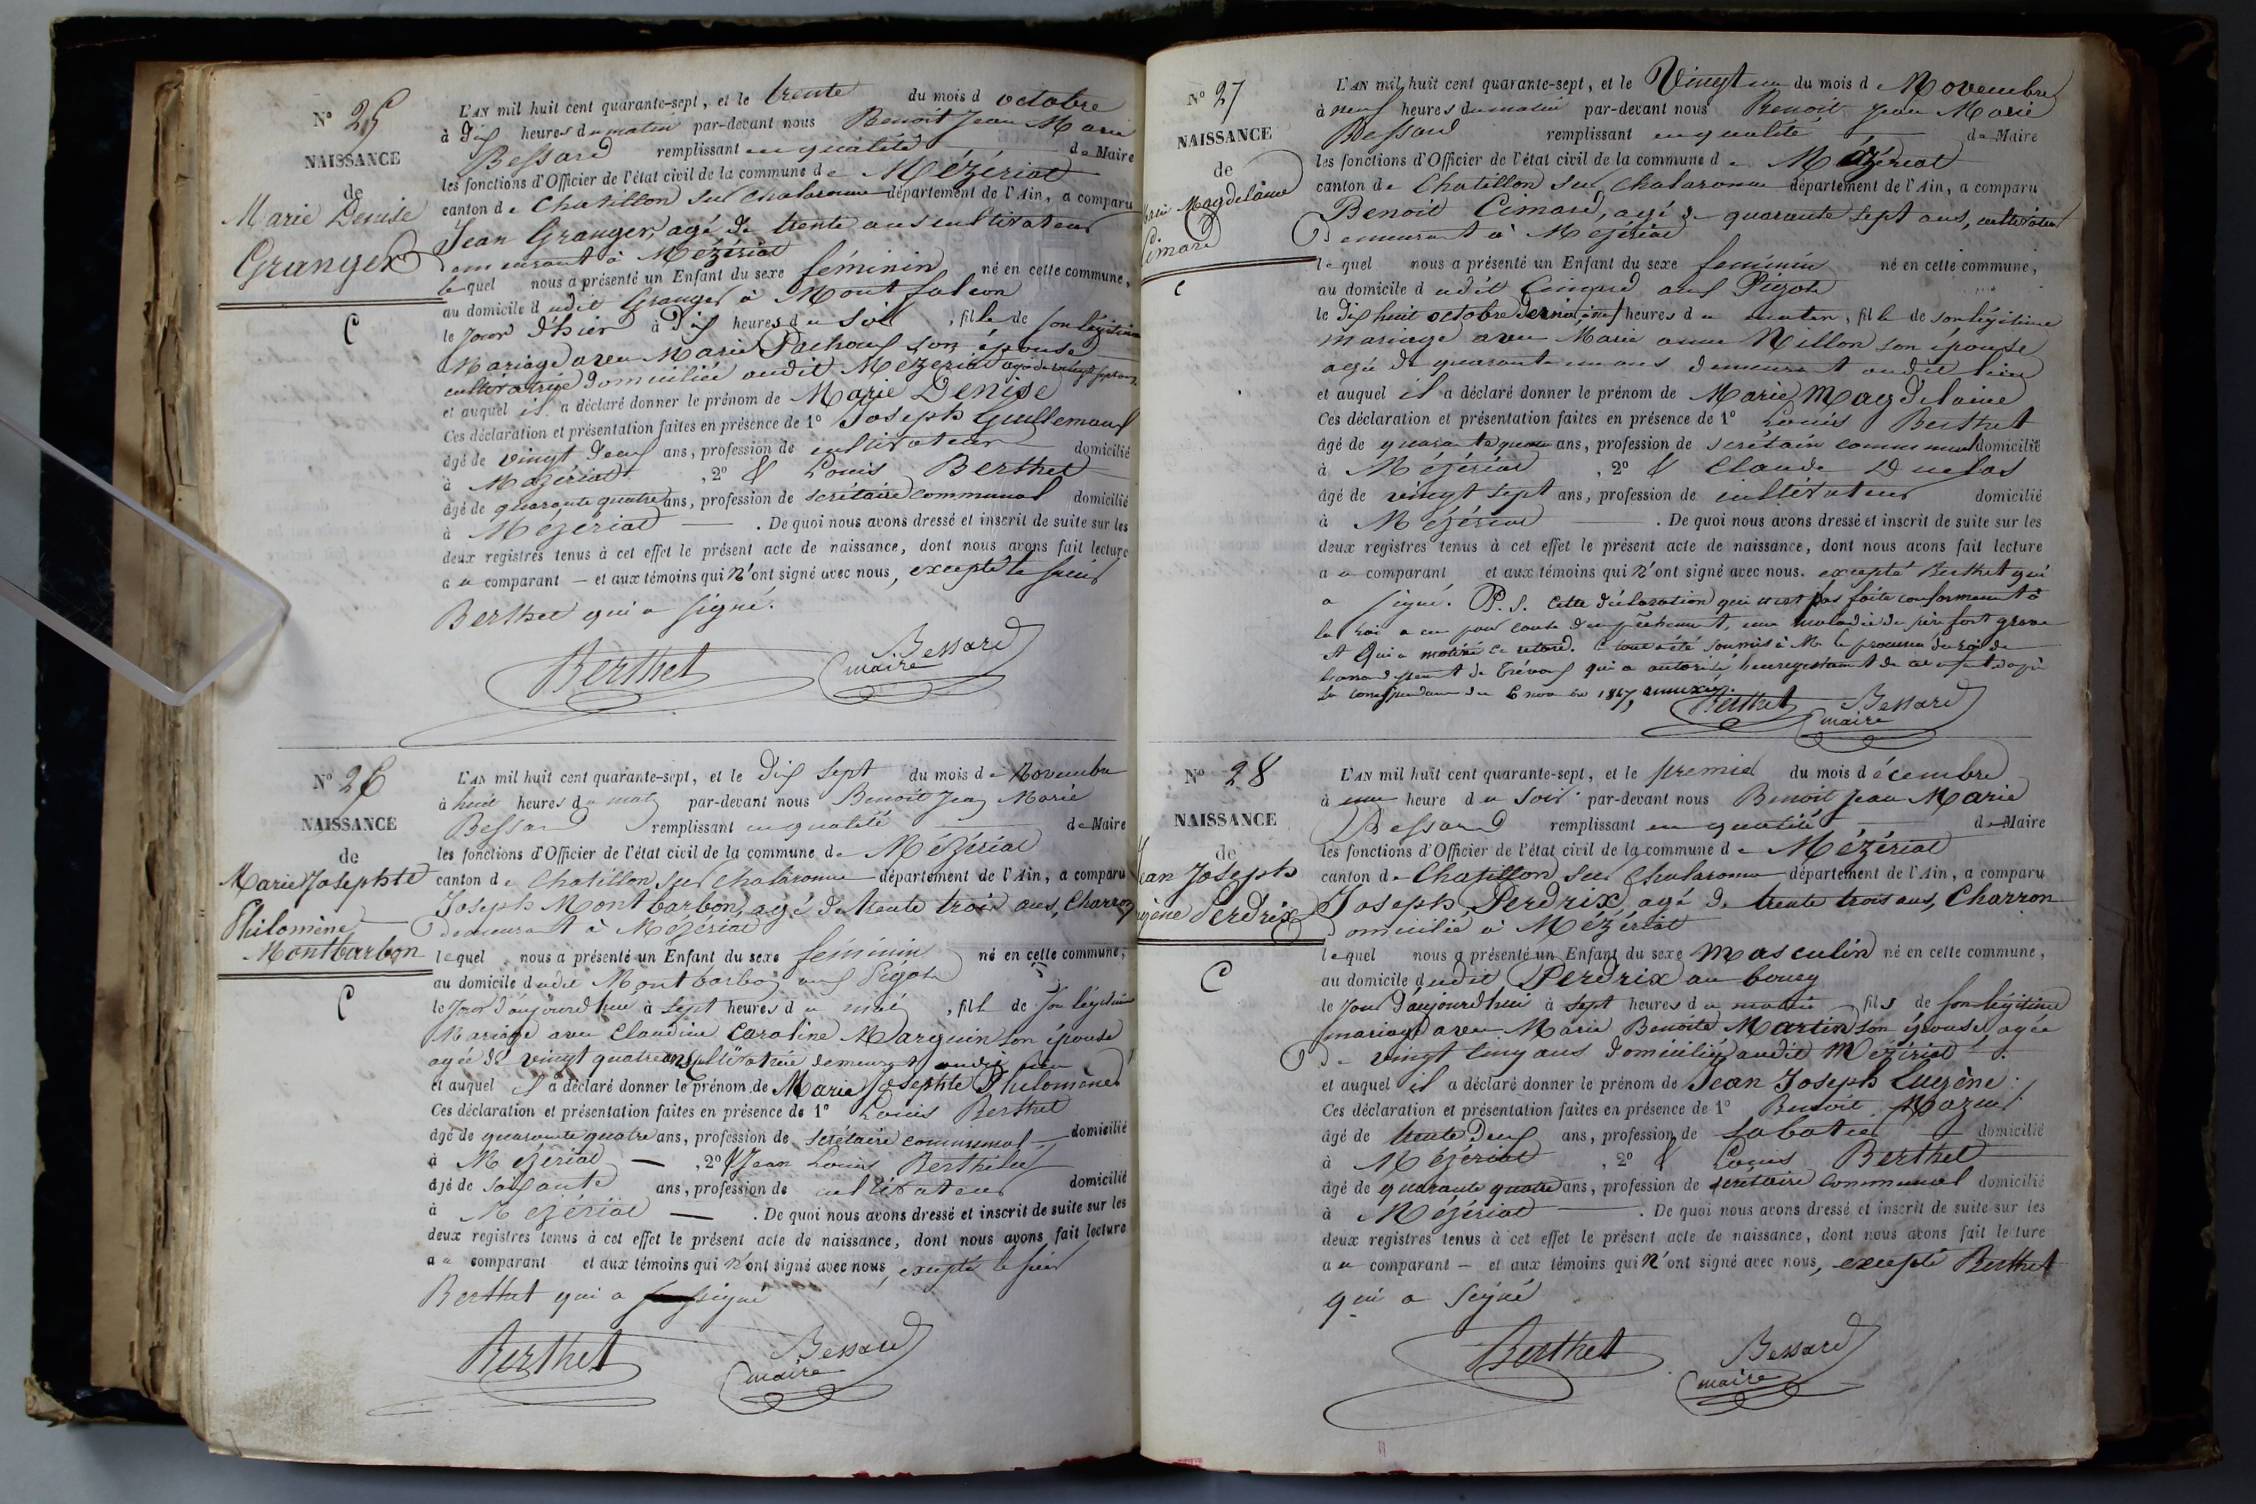 N° 25
NAISSANCE
de
Marie Denise
Granger
C
L'AN mil huit cent quarante-sept, et le trente du mois d octobre
à dix heures du matin par-devant nous Benoit Jean Marie
Bessard remplissant en qualité de Maire
les fonctions d'Officier de l'état civil de la commune de Mézériat
canton de Chatillon sur Chalaronne département de l'Ain, a comparu
Jean Granger, agé de trente ans cultivateur
demeurant à Mézériat
lequel nous a présenté un Enfant du sexe féminin né en cette commune,
au domicile dudit Granger à Montfalcon
le jour d'hier à dix heures du soir, fille de son légitime
Mariage avec Marie Pachoux son épouse
cultivatrice domiciliée audit Mézériat agée de vingt sept ans
et auquel il a déclaré donner le prénom de Marie Denise
Ces déclaration et présentation faites en présence de 1° Joseph Guillemaud
âgé de vingt deux ans, profession de cultivateur domicilié
à Mézériat, 2° & Louis Berthet
âgé de quarante quatre ans, profession de secrétaire communal domicilié
à Mézériat. De quoi nous avons dressé et inscrit de suite sur les
deux registres tenus à cet effet le présent acte de naissance, dont nous avons fait lecture
au comparant et aux témoins qui n'ont signé avec nous, excepté le sieur
Berthet qui a signé.
Berthet Bessard
maire
N° 26
NAISSANCE
de
Marie Josephte
Philomène
Montbarbon
C
L'AN mil huit cent quarante-sept, et le dix sept du mois de Novembre
à huit heures du matin par-devant nous Benoit Jean Marie
Bessard remplissant en qualité de Maire
les fonctions d'Officier de l'état civil de la commune de Mézériat
canton de Chatillon sur Chalaronne département de l'Ain, a comparu
Joseph Montbarbon, agé de trente trois ans, Charron
demeurant à Mézériat
lequel nous a présenté un Enfant du sexe féminin né en cette commune,
au domicile dudit Montbarbon aux Pigots
le jour d'aujourd'hui à sept heures du matin, fille de son légitime
Mariage avec Claudine Caroline Marguin son épouse
agée de vingt quatre ans cultivatrice demeurant audit lieu
et auquel il a déclaré donner le prénom de Marie Josephte Philomène
Ces déclaration et présentation faites en présence de 1° Louis Berthet
âgé de quarante quatre ans, profession de secrétaire communal domicilié
à Mézériat, 2° & Jean Louis
âgé de soixante ans, profession de cultivateur domicilié
à Mézériat. De quoi nous avons dressé et inscrit de suite sur les
deux registres tenus à cet effet le présent acte de naissance, dont nous avons fait lecture
au comparant et aux témoins qui n'ont signé avec nous, excepté le sieur
Berthet qui a signé
Berthet Bessard
maire
N° 27
NAISSANCE
de
Marie Magdelaine
Cimard
C
L'AN mil huit cent quarante-sept, et le Vingt un du mois de Novembre
à neuf heures du matin par-devant nous Benoit Jean Marie
Bessard remplissant en qualité de Maire
les fonctions d'Officier de l'état civil de la commune de Mézériat
canton de Chatillon sur Chalaronne département de l'Ain, a comparu
Benoit Cimard, agé de quarante sept ans, cultivateur
demeurant à Mézériat
lequel nous a présenté un Enfant du sexe féminin né en cette commune,
au domicile dudit Cimard aux Pigots
le dix huit octobre dernier, heures du matin, fille de son légitime
mariage avec Marie anne Nillon son épouse
agée de quarante un ans demeurant audit lieu
et auquel il a déclaré donner le prénom de Marie Magdelaine
Ces déclaration et présentation faites en présence de 1° Louis Berthet
âgé de quarante quatre ans, profession de secrétaire communal domicilié
à Mézériat, 2° & Claude Duclos
âgé de vingt sept ans, profession de cultivateur domicilié
à Mézériat. De quoi nous avons dressé et inscrit de suite sur les
deux registres tenus à cet effet le présent acte de naissance, dont nous avons fait lecture
au comparant et aux témoins qui n'ont signé avec nous. excepté Berthet qui
a signé. P.S. Cette déclaration qui n'est pas faite conformément à
la loi a eu pour cause d'empêchement, une maladie du père fort grave
et qui a motivé ce retard. Le tout a été soumis à Mr le procureur du roi de
l'arrondissement de Trévoux qui a autorisé l'enregistrement de cet enfant d'après
sa correspondance du 6 novembre 1847, annexée.
Berthet Bessard
maire
N° 28
NAISSANCE
de
Jean Joseph
Eugène Perdrix
C
L'AN mil huit cent quarante-sept, et le premier du mois décembre
à une heure du soir par-devant nous Benoit Jean Marie
Bessard remplissant en qualité de Maire
les fonctions d'Officier de l'état civil de la commune de Mézériat
canton de Chatillon sur Chalaronne département de l'Ain, a comparu
Joseph Perdrix agé de trente trois ans, Charron
domicilié à Mézériat
lequel nous a présenté un Enfant du sexe Masculin né en cette commune,
au domicile dudit Perdrix au bourg
le jour d'aujourd'hui à sept heures du matin fils de son légitime
mariage avec Marie Benoite Martin son épouse, agée
de vingt cinq ans domiciliée audit Mézériat
et auquel il a déclaré donner le prénom de Jean Joseph Eugène
Ces déclaration et présentation faites en présence de 1° Benoit Mazuir
âgé de trente deux ans, profession de sabotier domicilié
à Mézériat, 2° & Louis Berthet
âgé de quarante quatre ans, profession de secrétaire communal domicilié
à Mézériat. De quoi nous avons dressé et inscrit de suite sur les
deux registres tenus à cet effet le présent acte de naissance, dont nous avons fait lecture
au comparant et aux témoins qui n'ont signé avec nous, excepté Berthet
qui a signé
Berthet Bessard
maire